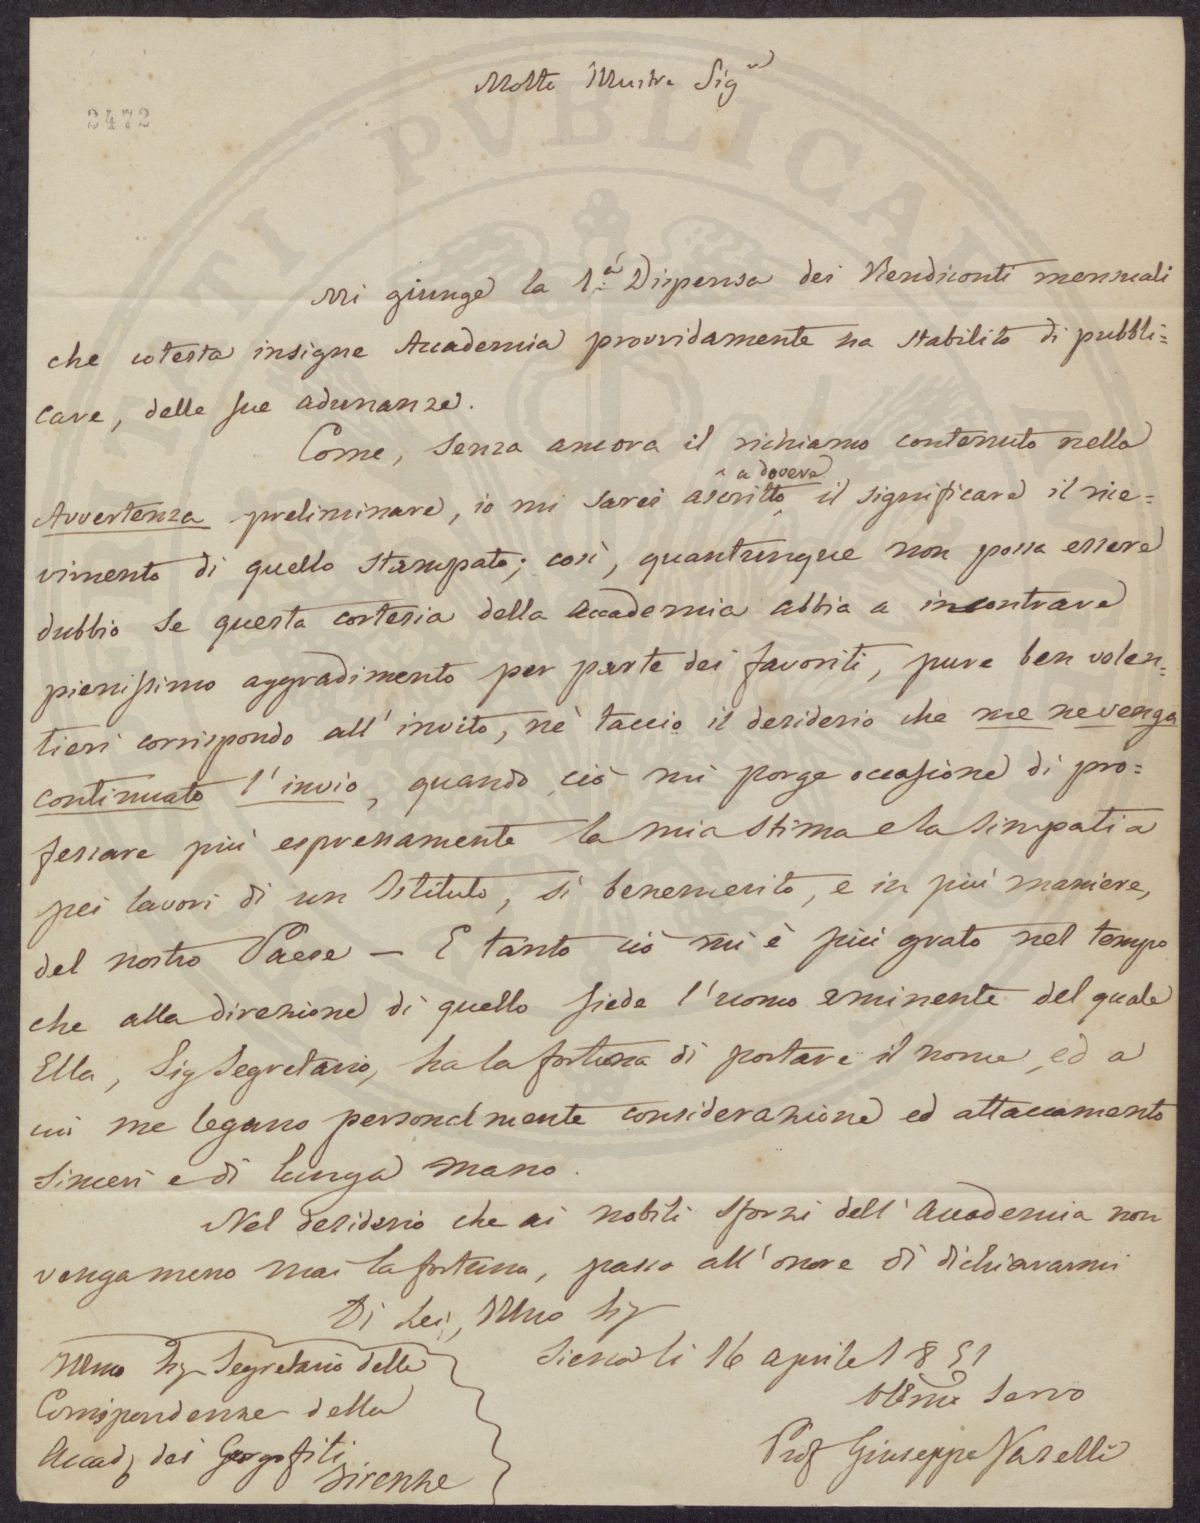 Molto Illustre Sig.re
2472
Mi giunge la 1.a Dispensa dei Rendiconti mensuali
che cotesta insigne Accademia provvidamente ha stabilito di pubbli=
care, delle sue adunanze.
Come, senza ancora il richiamo contenuto nella
a dovere
Avvertenza preliminare, io mi sarei ascritto il significare il rice=
vimento di quello stampato; così, quantunque non possa essere
dubbio se questa cortesia della Accademia abbia a incontrare
pienissimo aggradimento per parte dei favoriti, pure ben volen=
tieri corrispondo all'invito, nè taccio il desiderio che me ne venga
continuato l'invio, quando ciò mi porge occasione di pro=
fessare più espressamente la mia stima e la simpatia
pei lavori di un Istituto, sì benemerito, e in più maniere,
del nostro Paese — E tanto ciò mi è più grato nel tempo
che alla direzione di quello siede l'uomo eminente del quale
Ella, Sig Segretario, ha la fortuna di portare il nome, ed a
cui me legano personalmente considerazione ed attaccamento
sinceri e di lunga mano.
Nel desiderio che ai nobili sforzi dell'Accademia non
venga meno mai la fortuna, passo all'onore di dichiararmi
Di Lei, Illmo Sig
Siena li 16 aprile 1851
Illmo Sig Segretario delle
Corrispondenze della
Accad dei Georgofili
Firenze
Servo
Prof Giuseppe Vaselli
PVBLICA